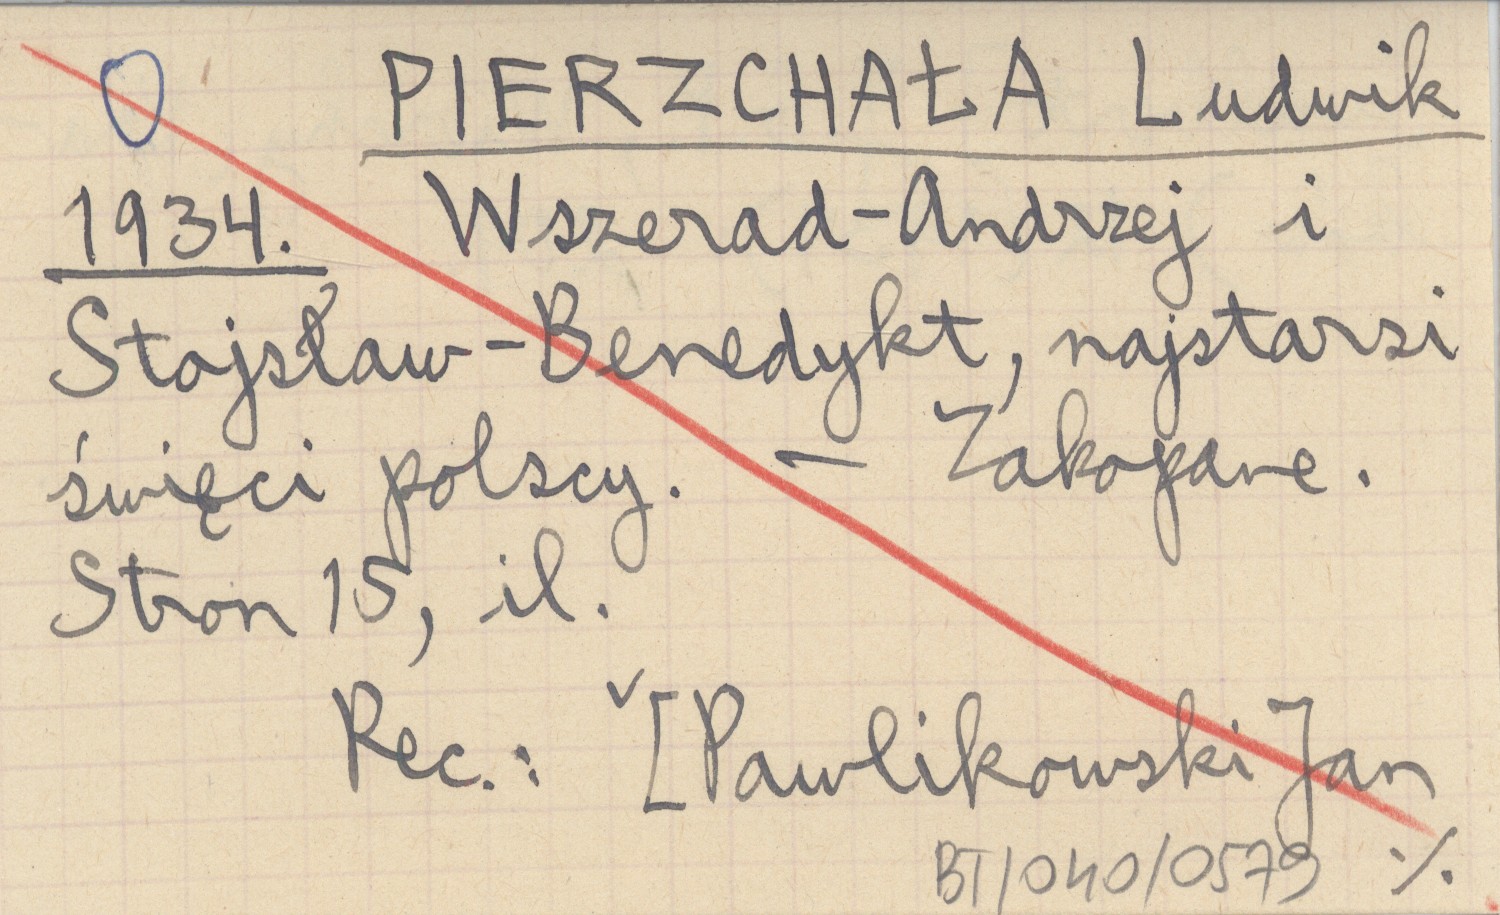 PIERZCHAŁA Ludwik
1934. Wszerad-Andrzej i
Stojsław-Benedykt, najstarsi
święci polscy. — Zakopane.
Stron 15, il.
Rec.: ✓[Pawlikowski Jan
BT/040/0579 ·/.